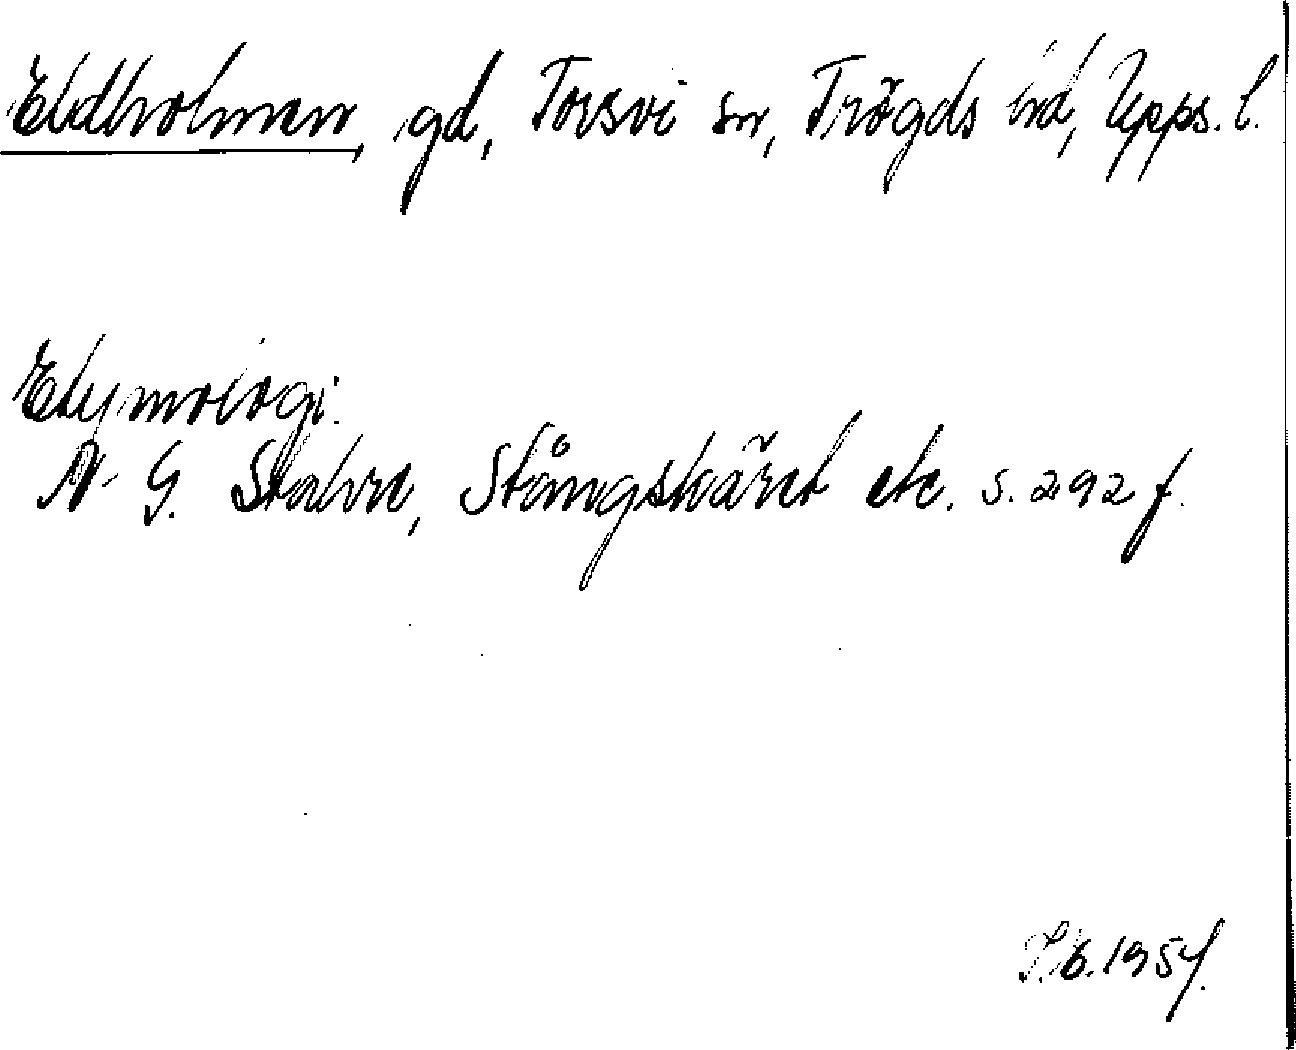 Eldholmen, gd, Torsvi sn, Trögds hd, Upps. l.
Etymologi:
N. G. Stahre, Stångskäret etc. s. 292 f.
1954.